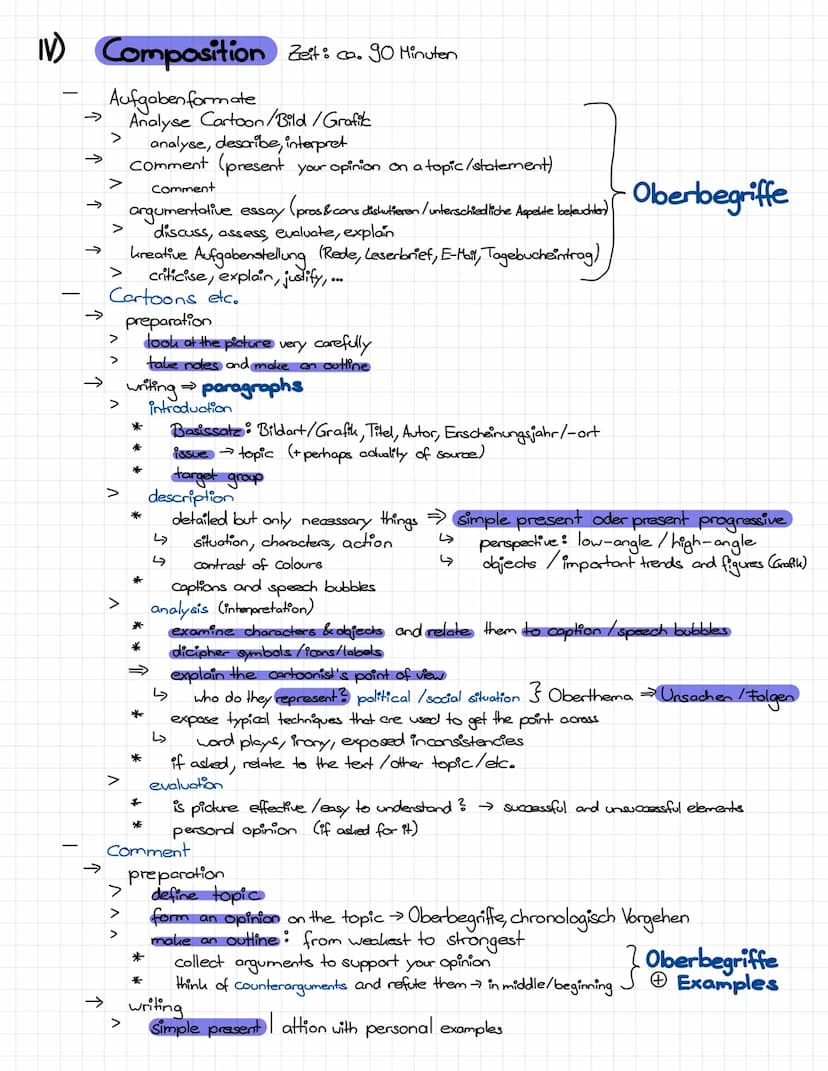 IV) Composition Zeit: ca. 90 Minuten
— Aufgabenformate
→ Analyse Cartoon/Bild/Grafik
> analyse, describe, interpret
→ comment (present your opinion on a topic/statement)
> comment
Oberbegriffe
→ argumentative essay (pros&cons diskutieren/unterschiedliche Aspekte beleuchten)
> discuss, assess, evaluate, explain
→ kreative Aufgabenstellung (Rede, Leserbrief, E-Mail, Tagebucheintrag)
> criticise, explain, justify, ...
— Cartoons etc.
→ preparation
> look at the picture very carefully
> take notes and make an outline
→ writing ⇒ paragraphs
> introduction
* Basissatz: Bildart/Grafik, Titel, Autor, Erscheinungsjahr/-ort
* issue → topic (+ perhaps actuality of source)
* target group
> description
* detailed but only necessary things ⇒ simple present oder present progressive
↳ situation, characters, action ↳ perspective: low-angle/high-angle
↳ contrast of colours ↳ objects/important trends and figures (Grafik)
* captions and speech bubbles
> analysis (interpretation)
* examine characters & objects and relate them to caption/speech bubbles
* dicipher symbols/icons/labels
⇒ explain the cartoonist's point of view
↳ who do they represent? political/social situation } Oberthema ⇒ Ursachen/Folgen
* expose typical techniques that are used to get the point across
↳ word plays, irony, exposed inconsistencies
* if asked, relate to the text/other topic/etc.
> evaluation
* is picture effective/easy to understand? → successful and unsuccessful elements
* personal opinion (if asked for it)
— Comment
→ preparation
> define topic
> form an opinion on the topic → Oberbegriffe, chronologisch Vorgehen
> make an outline: from weakest to strongest
* collect arguments to support your opinion
* think of counterarguments and refute them → in middle/beginning
} Oberbegriffe
⊕ Examples
→ writing
> simple present | attion with personal examples